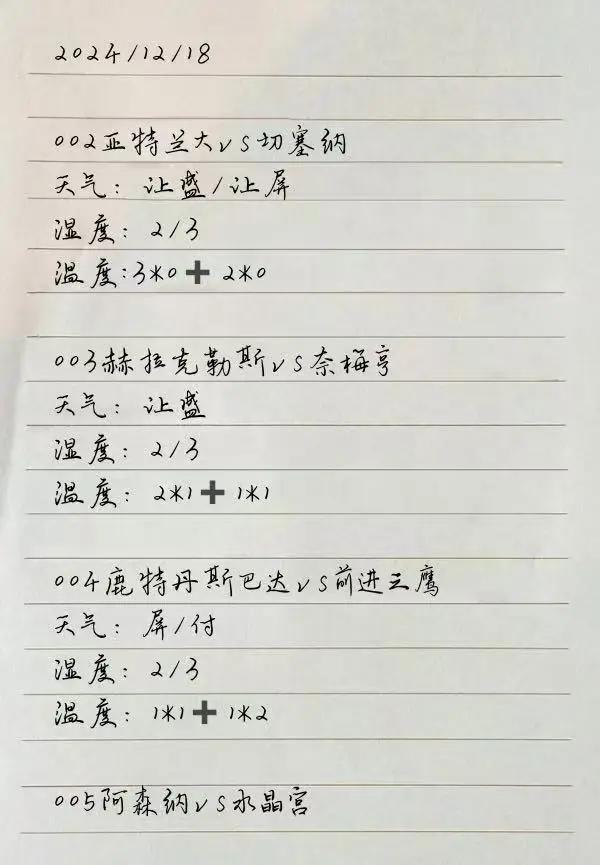 2024/12/18
002亚特兰大vs切塞纳
天气: 让盛/让屏
湿度: 2/3
温度:3*0➕2*0
003赫拉克勒斯vs奈梅亨
天气: 让盛
湿度: 2/3
温度: 2*1➕1*1
004鹿特丹斯巴达vs前进三鹰
天气: 屏/付
湿度: 2/3
温度: 1*1➕1*2
005阿森纳vs水晶宫